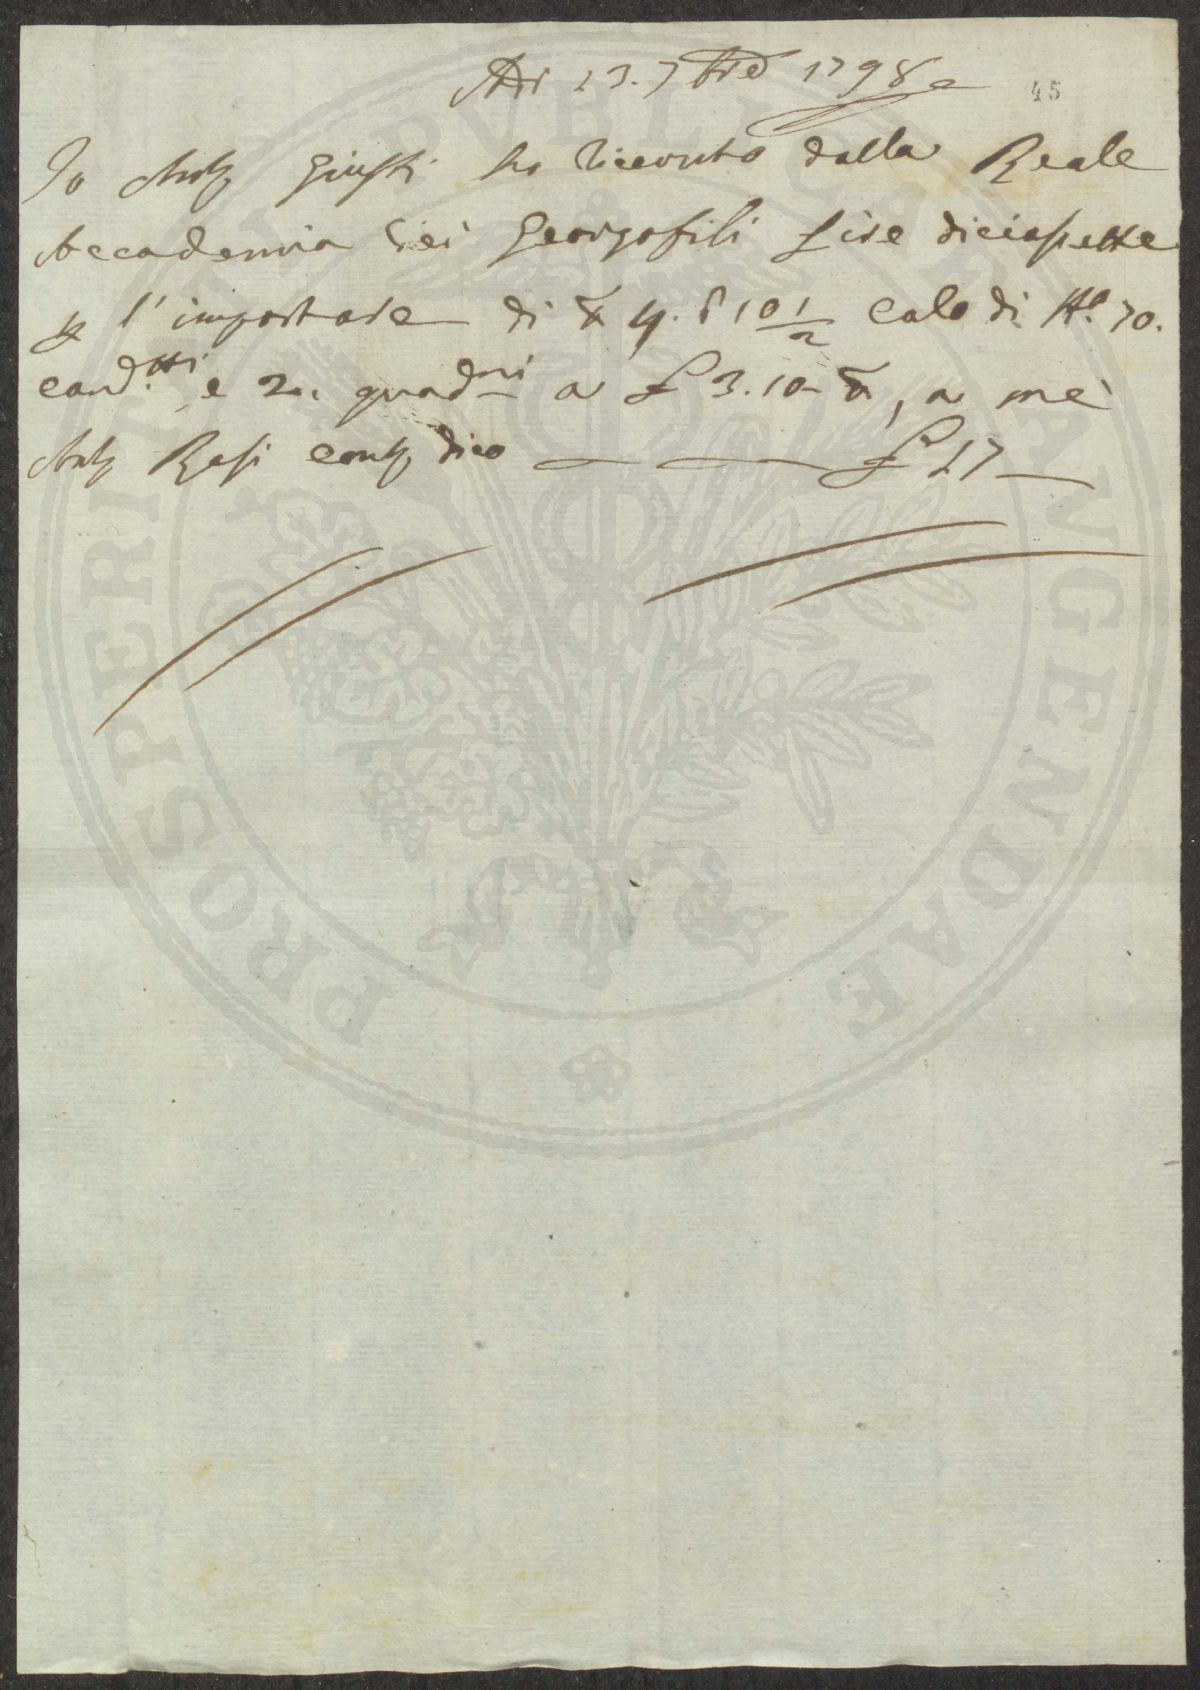 Adì 23. 7bre 1798
45
Io Antº Giusti ho ricevuto dalla Reale
Accademia dei Georgofili Lire diciasette
p l'importare di 4. 10 1/2 calo di Nº 70.
cand.tti e 2. quad.ni a £ 3.10 , a me
Antº cont. dico £ 17
PROSPERITATI PVBLICAE AVGENDAE